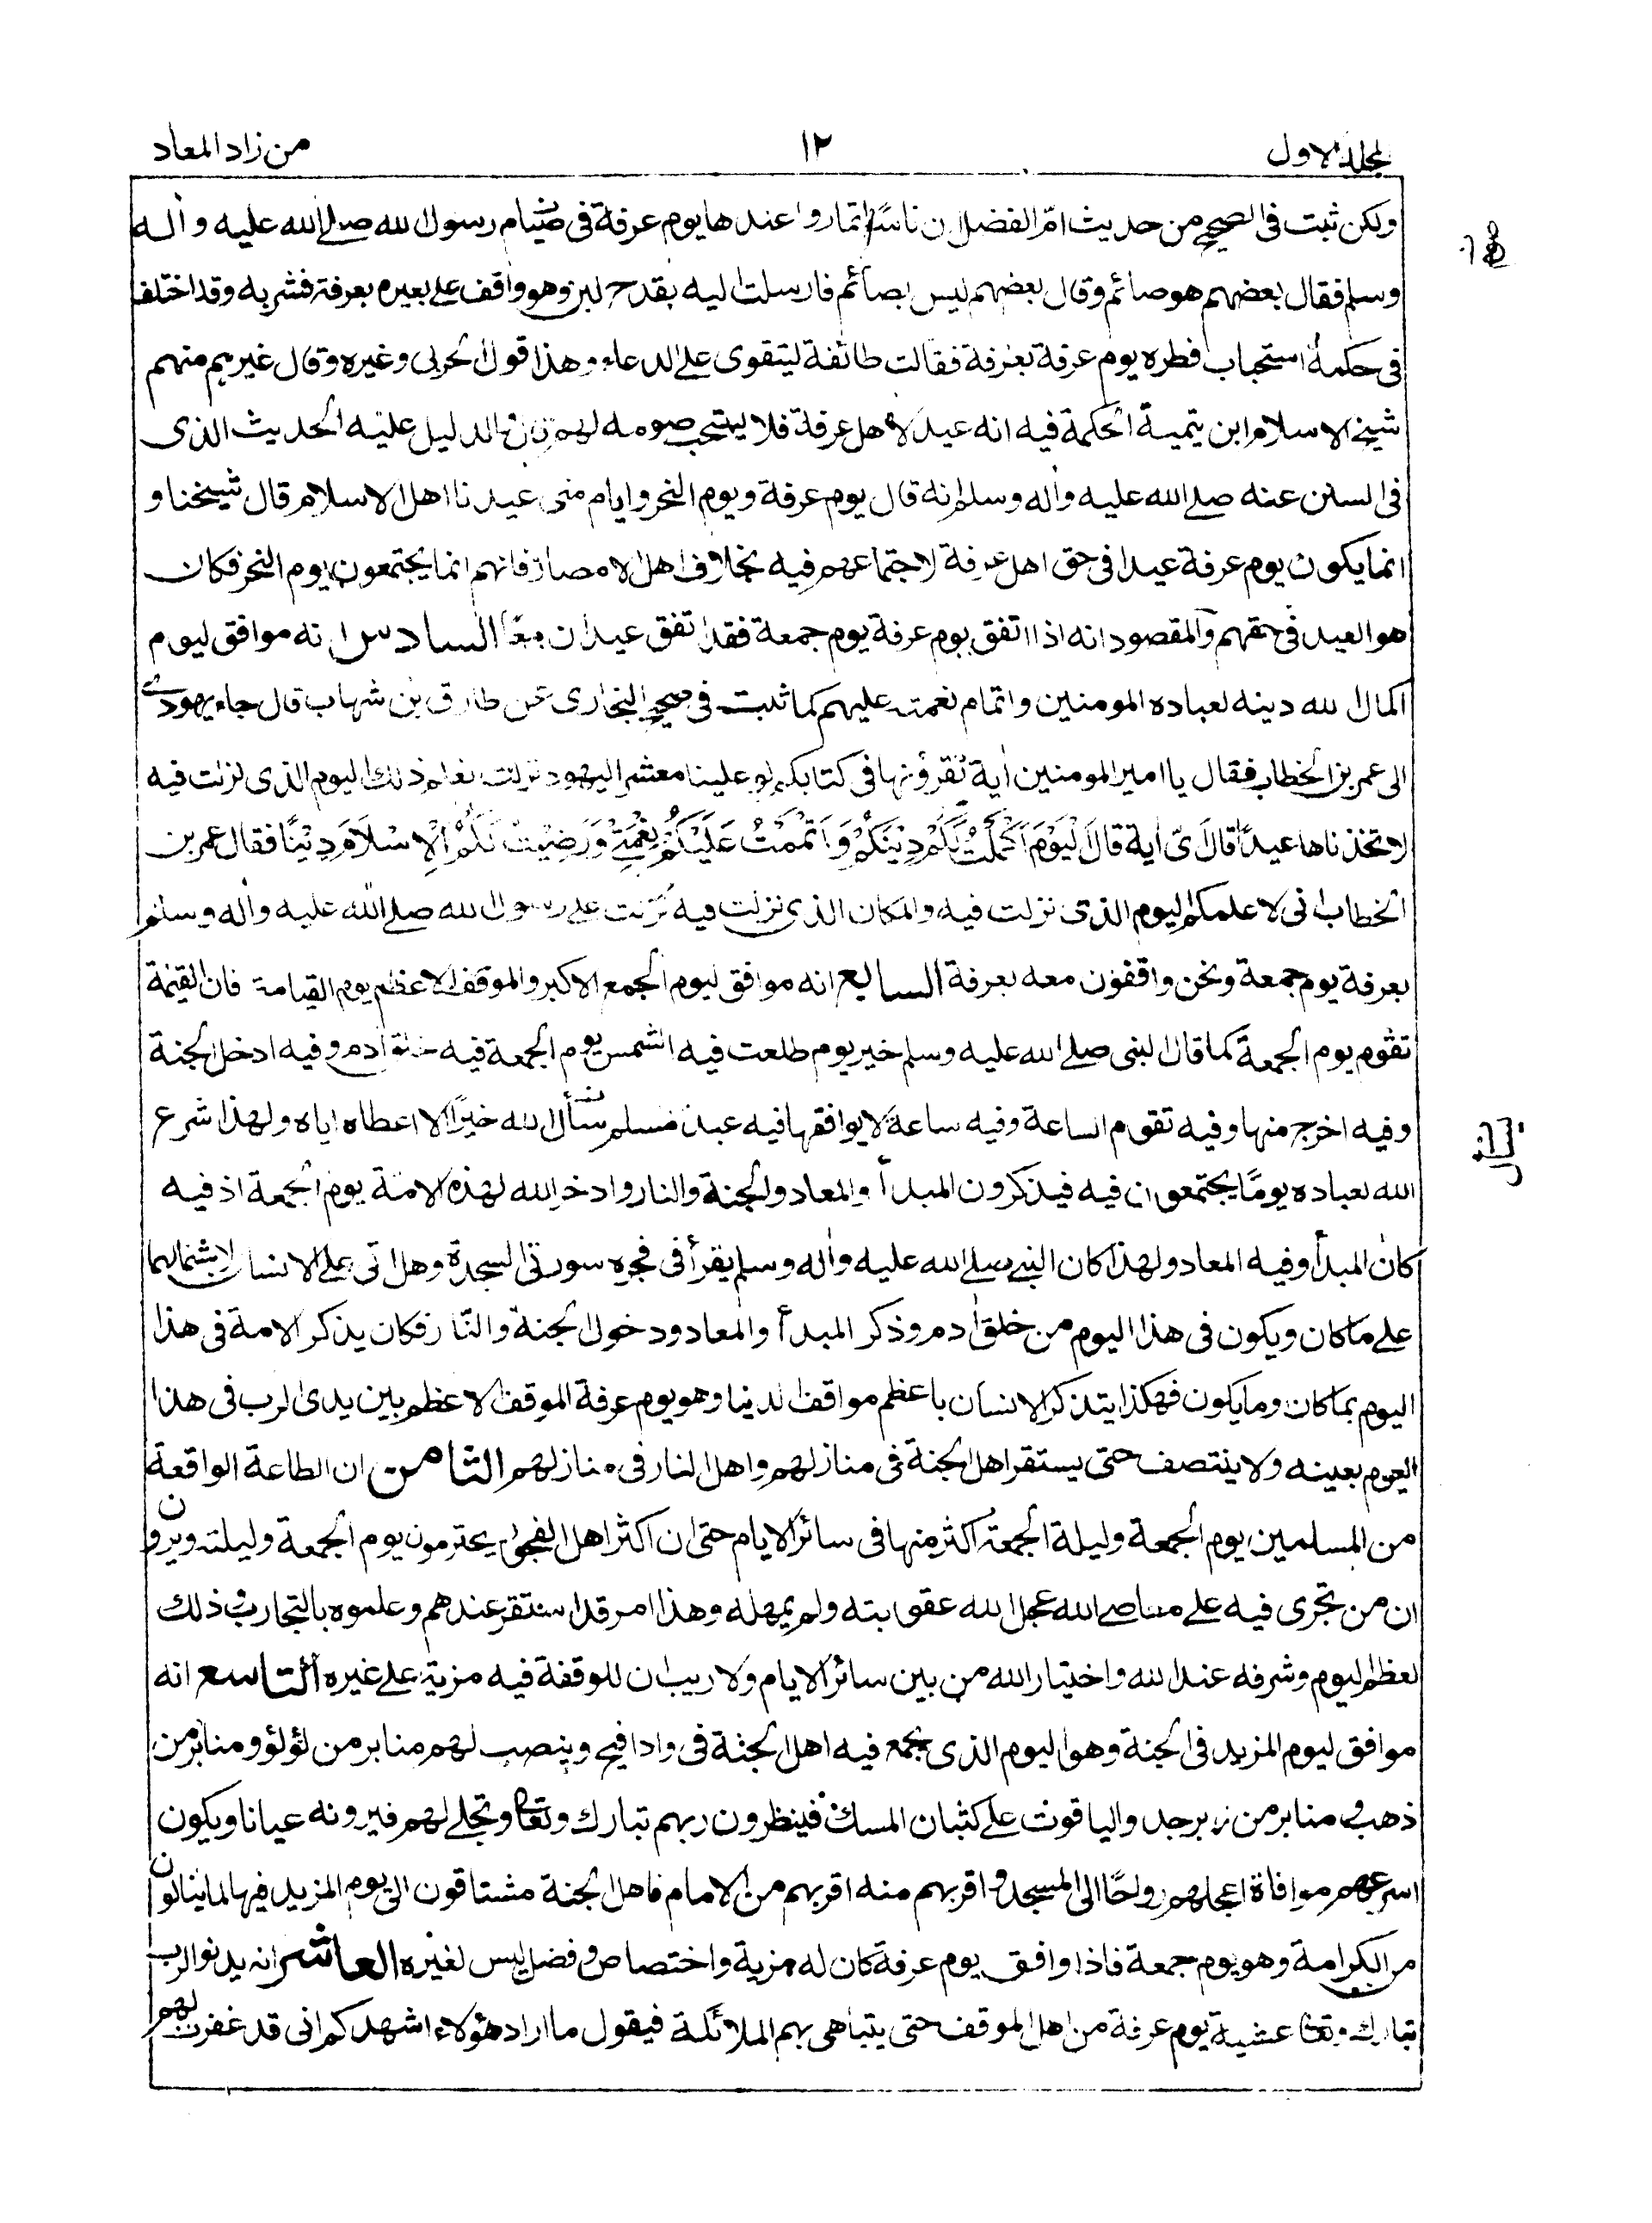 المجلد الاول
١٢
من زاد المعاد
ولكن ثبت فى الصحيح من حديث امّ الفضل ان ناسًا تماروا عندها يوم عرفة فى صيام رسول الله صلے الله عليه واٰله
وسلم فقال بعضهم هو صائم وقال بعضهم ليس بصائم فارسلت اليه بقدح لبن وهو واقف علے بعيره بعرفة فشربه وقد اختلف
فى حكمة استحباب فطره يوم عرفة بعرفة فقالت طائفة ليتقوى علے الدعاء وهذا قول الخرقى وغيره وقال غيرهم منهم
شيخ الاسلام ابن تيمية الحكمة فيه انه عيد لاهل عرفة فلا يستحب صومه لهم قال والدليل عليه الحديث الذى
فى السنن عنه صلے الله عليه واٰله وسلم انه قال يوم عرفة ويوم النحر وايام منى عيدنا اهل الاسلام قال شيخنا و
انما يكون يوم عرفة عيدا فى حق اهل عرفة لاجتماعهم فيه بخلاف اهل الامصار فانهم انما يجتمعون يوم النحر فكان
هو العيد فى حقهم والمقصود انه اذا اتفق يوم عرفة يوم جمعة فقد اتفق عيدان معًا السادس انه موافق ليوم
اكمال الله دينه لعباده المومنين واتمام نعمته عليهم كما ثبت فى صحيح البخارى عن طارق بن شهاب قال جاء يهودى
الى عمر بن الخطاب فقال يا امير المومنين اٰية تقرؤنها فى كتابكم لو علينا معشر اليهود نزلت نعلم ذلك اليوم الذى نزلت فيه
لاتخذناها عيدًا قال اىّ اٰية قال اَلْيَوْمَ اَكْمَلْتُ لَكُمْ دِيْنَكُمْ وَاَتْمَمْتُ عَلَيْكُمْ نِعْمَتِيْ وَرَضِيْتُ لَكُمُ الْاِسْلَامَ دِيْنًا فقال عمر بن
الخطاب انى لاعلم اليوم الذى نزلت فيه والمكان الذى نزلت فيه نزلت على رسول الله صلے الله عليه واٰله وسلم
بعرفة يوم جمعة ونحن واقفون معه بعرفة السابع انه موافق ليوم الجمع الاكبر والموقف الاعظم يوم القيامة فان القيٰمة
تقوم يوم الجمعة كما قال النبى صلے الله عليه وسلم خير يوم طلعت فيه الشمس يوم الجمعة فيه خلق اٰدم وفيه ادخل الجنة
وفيه اخرج منها وفيه تقوم الساعة وفيه ساعة لا يوافقها فيه عبد مسلم سأل الله خيرًا الا اعطاه اياه ولهذا شرع
الله لعباده يومًا يجتمعون فيه فيذكرون المبدأ والمعاد والجنة والنار وادخر الله لهذه الامة يوم الجمعة اذ فيه
كان المبدأ وفيه المعاد ولهذا كان النبى صلے الله عليه واٰله وسلم يقرأ فى فجره سورتى السجدة وهل اتى على الانسان لاشتمالهما
علے ما كان ويكون فى هذا اليوم من خلق اٰدم وذكر المبدأ والمعاد ودخول الجنة والنّار فكان يذكر الامة فى هذا
اليوم بما كان وما يكون فهكذا يتذكر الانسان باعظم مواقف الدنيا وهو يوم عرفة الموقف الاعظم بين يدى الرب فى هذا
اليوم بعينه ولا ينتصف حتى يستقر اهل الجنة فى منازلهم واهل النار فى منازلهم الثامن ان الطاعة الواقعة
من المسلمين يوم الجمعة وليلة الجمعة اكثر منها فى سائر الايام حتى ان اكثر اهل الفجور يحترمون يوم الجمعة وليلته ويرون
ان من تجرى فيه على معاصى الله عجل الله عقوبته ولم يمهله وهذا امر قد استقر عندهم وعلموه بالتجارب وذلك
لعظم اليوم وشرفه عند الله واختيار الله من بين سائر الايام ولا ريب ان للوقفة فيه مزية على غيره التاسع انه
موافق ليوم المزيد فى الجنة وهو اليوم الذى يجمع فيه اهل الجنة فى واد افيح وينصب لهم منابر من لؤلؤ ومنابر من
ذهب و منابر من زبرجد والياقوت على كثبان المسك فينظرون ربهم تبارك وتعالى وتجلے لهم فيرونه عيانا ويكون
اسرعهم موافاة اعجلهم رواحًا الى المسجد و اقربهم منه اقربهم من الامام فاهل الجنة مشتاقون الى يوم المزيد فيها لما ينالون
من الكرامة وهو يوم جمعة فاذا وافق يوم عرفة كان له مزية واختصاص و فضل ليس لغيره العاشر انه يدنو الرب
تبارك وتعالى عشية يوم عرفة من اهل الموقف حتى يتباهى بهم الملائكة فيقول ما اراد هؤلاء اشهدكم انى قد غفرت لهم